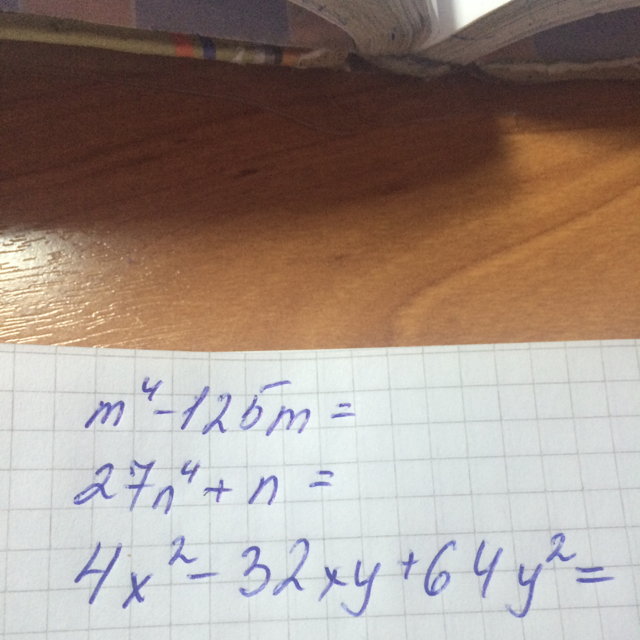 m⁴-125m=
27n⁴+n=
4x²-32xy+64y²=